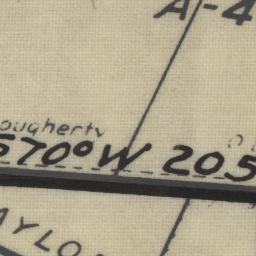 A-4
ougherty
S70°W 205
AYLO